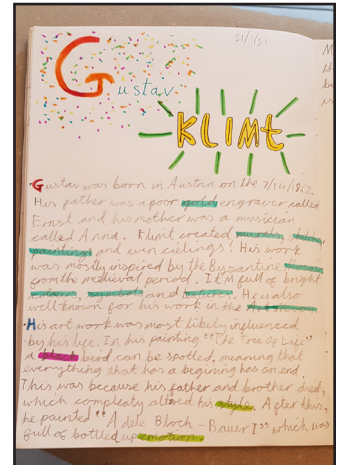 21/1/21
Gustav
KLIMt
Gustav was born in Austria on the 7/14/1862.
His father was a poor gold engraver called
Ernst and his mother was a musician
called Anna. Klimt created murals,
paintings and even cielings! His work
was mostly inspired by the Byzantine
from the medieval period. It's full of bright
and He is also
well known for his work in the
His art work was most likely influenced
by his life. In his painting "The Tree of Life"
a black bird can be spotted, meaning that
everything that has a begining has an end.
This was because his father and brother died,
which compleatly altered his style. After this,
he painted "Adele Bloch-Bauer I" which was
full of bottled up emotion.